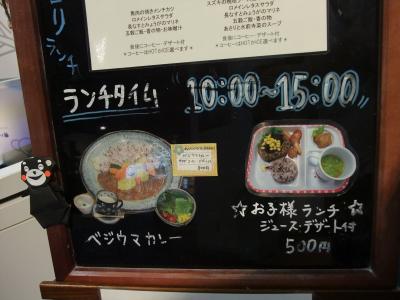 魚肉の焼きメンチカツ
ロメインレタスサラダ
長なすとみょうがのマリネ
五穀ご飯・香の物・お味噌汁
食後にコーヒー・デザート付
*コーヒーはHOTかICE選べます*
ロメインレタスサラダ
長なすとみょうがのマリネ
五穀ご飯・香の物
あさりと水前寺菜のスープ
食後にコーヒー・デザート付
*コーヒーはHOTかICE選べます*
ランチ
ランチタイム 10:00~15:00
ベジウマカレー
☆お子様ランチ☆
ジュース・デザート付
500円